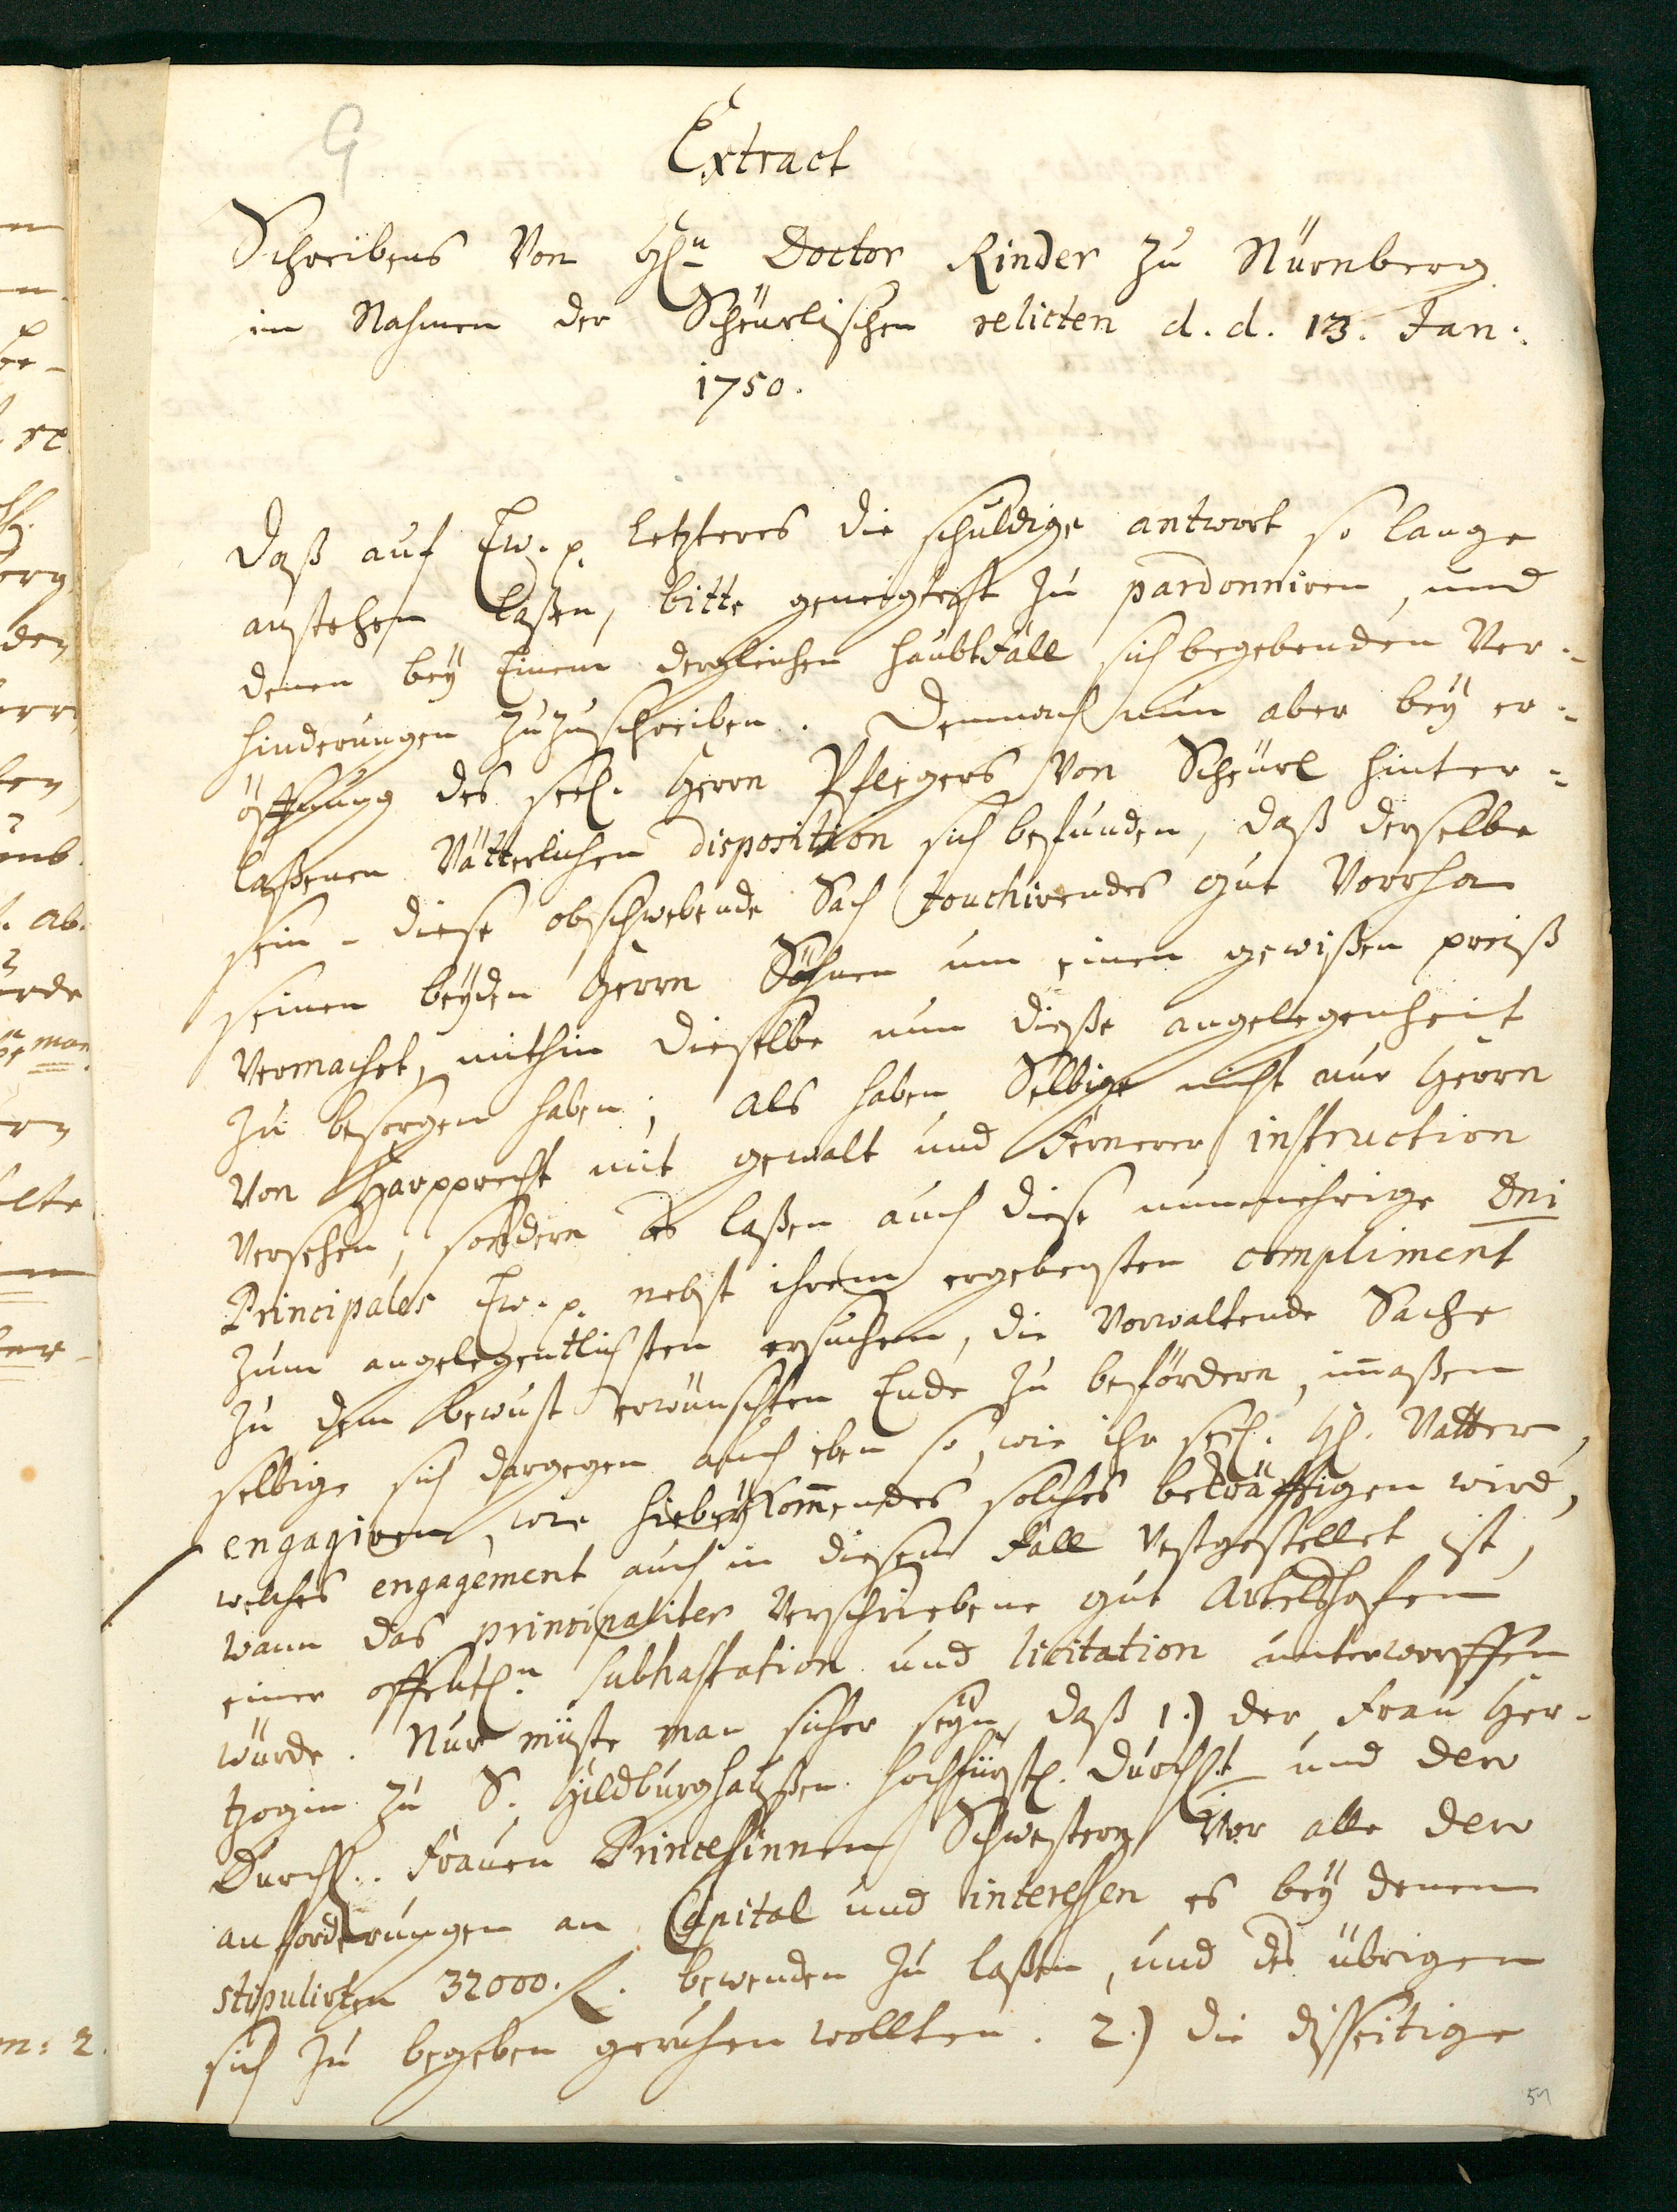 G
Extract
Schreibens Von Hl.n Doctor Rinder zu Nürnberg
im Nahmen der Scheürlischen relicten d. d. 13. Jan:
1750.
Daß auf Ew. p. letzteres die schuldige antwort so lange
anstehen laßen, bitte geneigtest zu pardonniren, und
denen bey Einem dergleichen haubtfall sich begebenden Ver-
hinderungen zuzuschreiben. Demnach nun aber bey er-
öffnung des seel. Herrn Pflegers Von Scheürl hinter-
laßenen Vätterlichen disposition sich befunden, daß derselbe
sein - diese obschwebende Sach touchirendes Gut Vorrha
seinen beyden Herrn Söhnen um einen gewißen preiß
Vermachet, mithin dieselbe nun dieße angelegenheit
zu besorgen haben; als haben Selbige nicht nur Herrn
Von Harpprecht mit gewalt und fernerer instruction
Versehen, sondern es laßen auch diese nunmehrige Dni
Principales Ew. p. nebst ihrem ergebensten compliment
zum angelegentlichsten ersuchen, die Vorwaltende Sache
zu dem bewust erwünschten Ende zu befördern, imaßen
selbige sich dargegen auch eben so, wie ihr seel. Hl. Vatter,
engagiren, wie hiebeykommendes solches bekräfftigen wird,
welches engagement auch in diesem Fall Vestgestellet ist,
wann das principaliter Verschriebene gut Artelshofen
einer offentl.n subhastation und licitation unterworffen
würde. Nur müste man sicher seyn, daß 1.) der Frau Her-
tzogin zu S. Hildburghaußen hochfürstl. Durchlt und dero
Durchl.. Frauen Princeßinnen Schwestern Vor alle dero
anforderungen an Capital und interessen es bey denen
stipulirten 32000. f. bewenden zu laßen, und des übrigen
sich zu begeben geruhen wollten. 2.) die disseitige